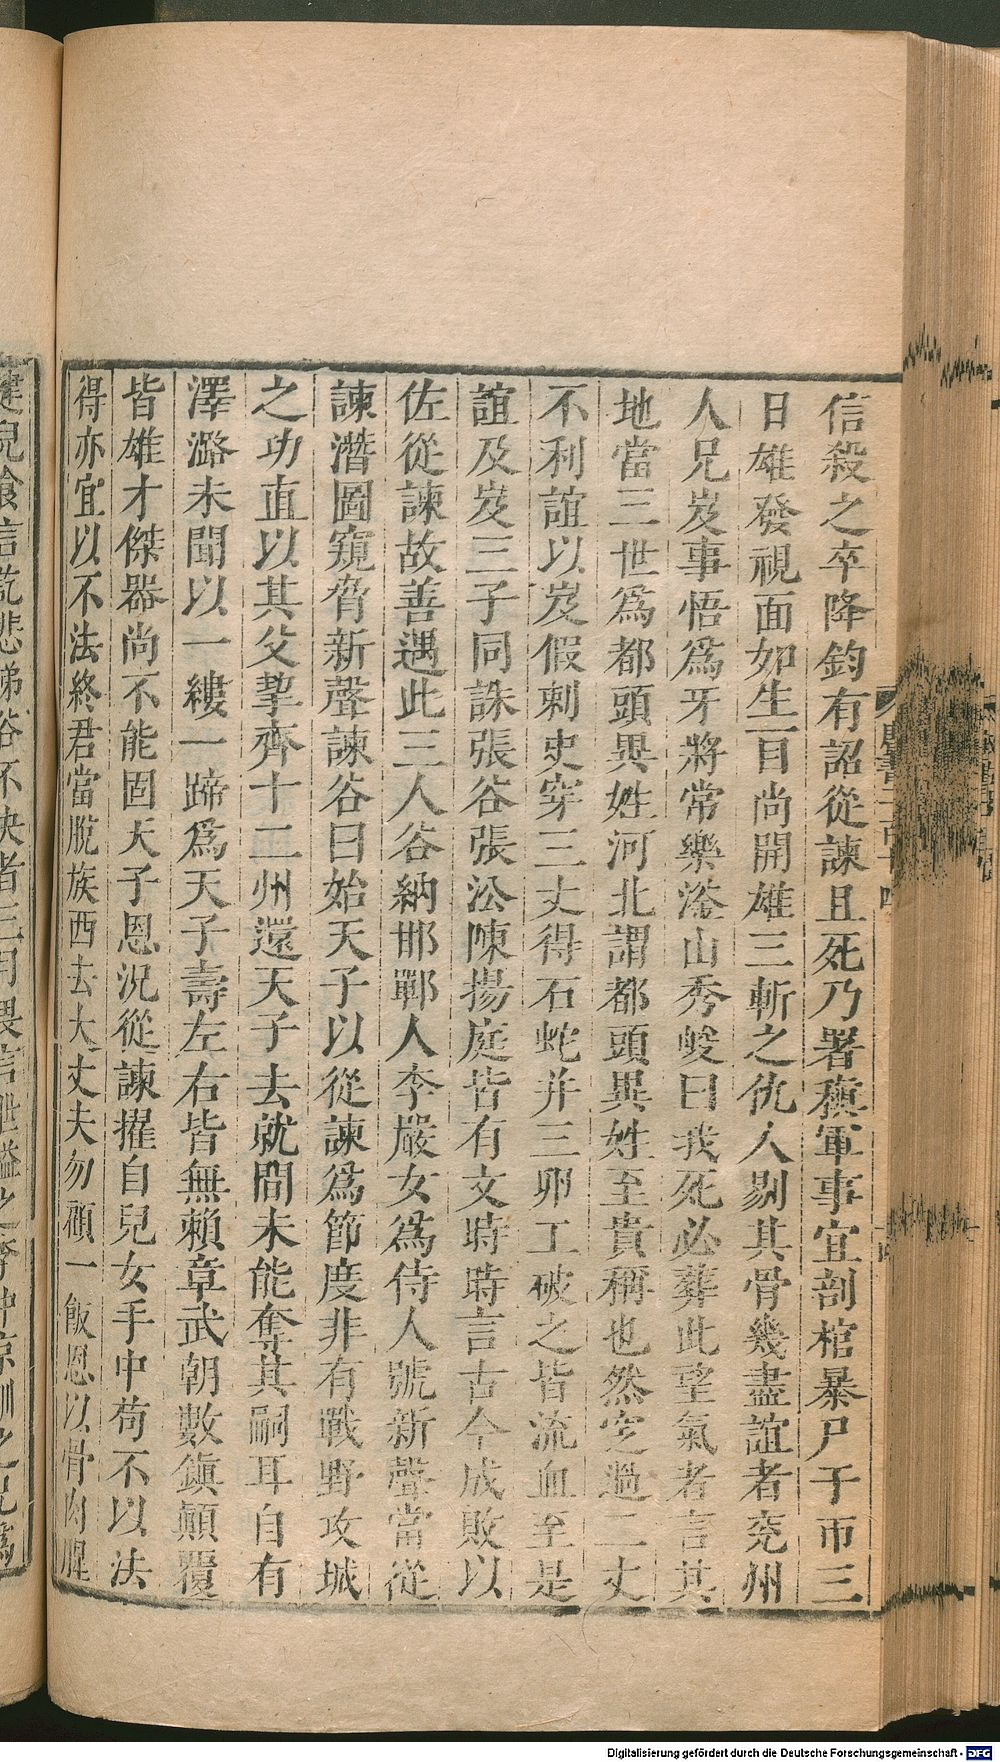 信殺之卒降鈞有詔從諫且死乃署稹軍事宜剖棺暴尸于市三
日雄發視面如生一目尚開雄三斬之仇人剔其骨幾盡誼者兖州
人兄岌事悟爲牙將常樂滏山秀峻曰我死必葬此望氣者言其
地當三世爲都頭異姓河北謂都頭異姓至貴稱也然窆過二丈
不利誼以岌假刺史穿三丈得石蛇并三卵工破之皆流血至是
誼及岌三子同誅張谷張沿陳揚庭皆有文時時言古今成敗以
佐從諫故善遇此三人谷納邯鄲人李嚴女爲侍人號新聲當從
諫潛圖窺脅新聲諫谷曰始天子以從諫爲節度非有戰野攻城
之功直以其父挈齊十二州還天子去就間未能奪其嗣耳自有
澤潞未聞以一縷一蹄爲天子壽左右皆無賴章武朝數鎭顛覆
皆雄才傑器尚不能固天子恩況從諫擢自兒女手中苟不以法
得亦宜以不法終君當脫族西去大丈夫勿顧一飯恩以骨肉腥
健兒食言訖悲涕谷不決者三月畏言泄縊之李仲京訓之兄爲
Digitalisierung gefördert durch die Deutsche Forschungsgemeinschaft - DFG